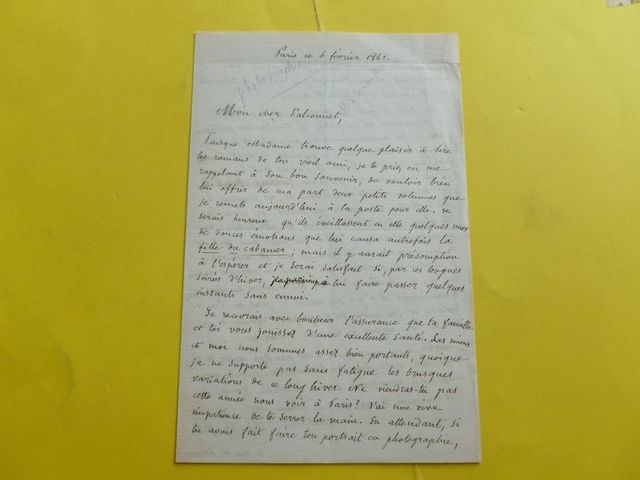 Paris ce 6 février 1861.
photographie
Mon cher Rabonnet,
Puisque Madame trouve quelque plaisir à lire
les romans de ton vieil ami, je te prie, en me
rappelant à son bon souvenir, de vouloir bien
lui offrir de ma part deux petits volumes que
je remets aujourd'hui à la poste pour elle. Je
serais heureux qu'ils éveillassent en elle quelques unes
de douces émotions que lui causa autrefois la
fille du cabanier ; mais il y aurait présomption
à l'espérer et je serai satisfait si, par ces longues
soirées d'hiver, à lui faire passer quelques
instants sans ennui.
Je recevrais avec bonheur l'assurance que ta famille
et toi vous jouissez d'une excellente santé. Les miens
et moi nous sommes assez bien portants, quoique
je ne supporte pas sans fatigue les brusques
variations de ce long hiver. Ne viendras-tu pas
cette année nous voir à Paris ? J'ai une vive
impatience de te serrer la main. En attendant, si
tu avais fait faire ton portrait en photographie,